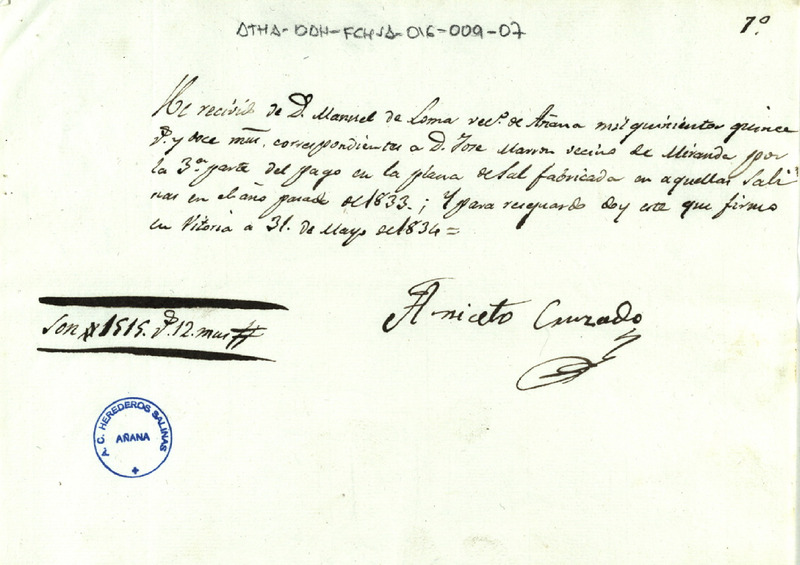 ATHA-DAH-FCHSA-016-009-07
7º
He recivido de D. Manuel de Loma vecº. de Añana mil quinientos quince
r.^s y doce mrs. correspondientes a D. Jose Marron vecino de Miranda por
la 3ª parte del pago en la plana de sal fabricada en aquellas Sali
nas en el año pasado de 1833.; Y para resguardo doy este que firmo
en Vitoria a 31. de Mayo de 1834 =
Aniceto Cruzado
Son # 1515. r.^s 12. mrs #
C. HEREDEROS SALINAS
AÑANA